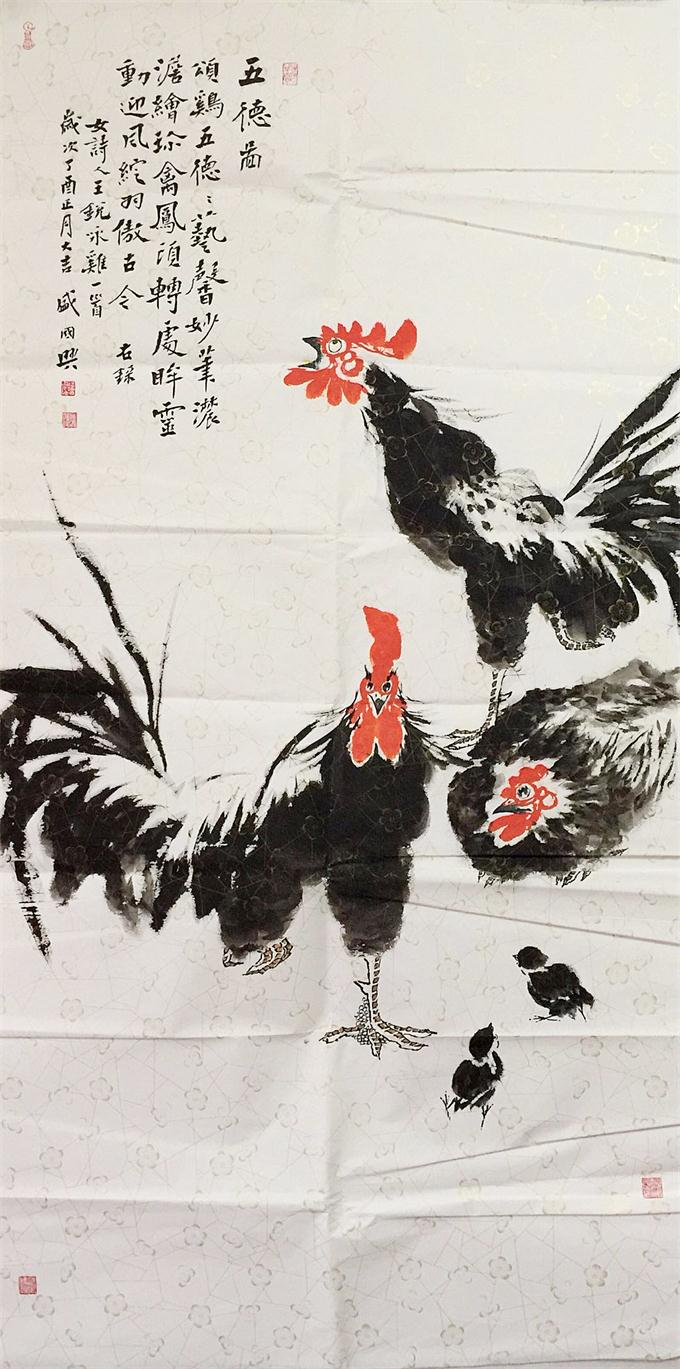 五德啚
頌鷄五德〻藝馨妙筆濃
澹繪珎禽鳳頂轉處眸靈
動迎風綻羽傲古今 右錄
女詩人王銳冰雞一首
歲次丁酉正月大吉 盛國興